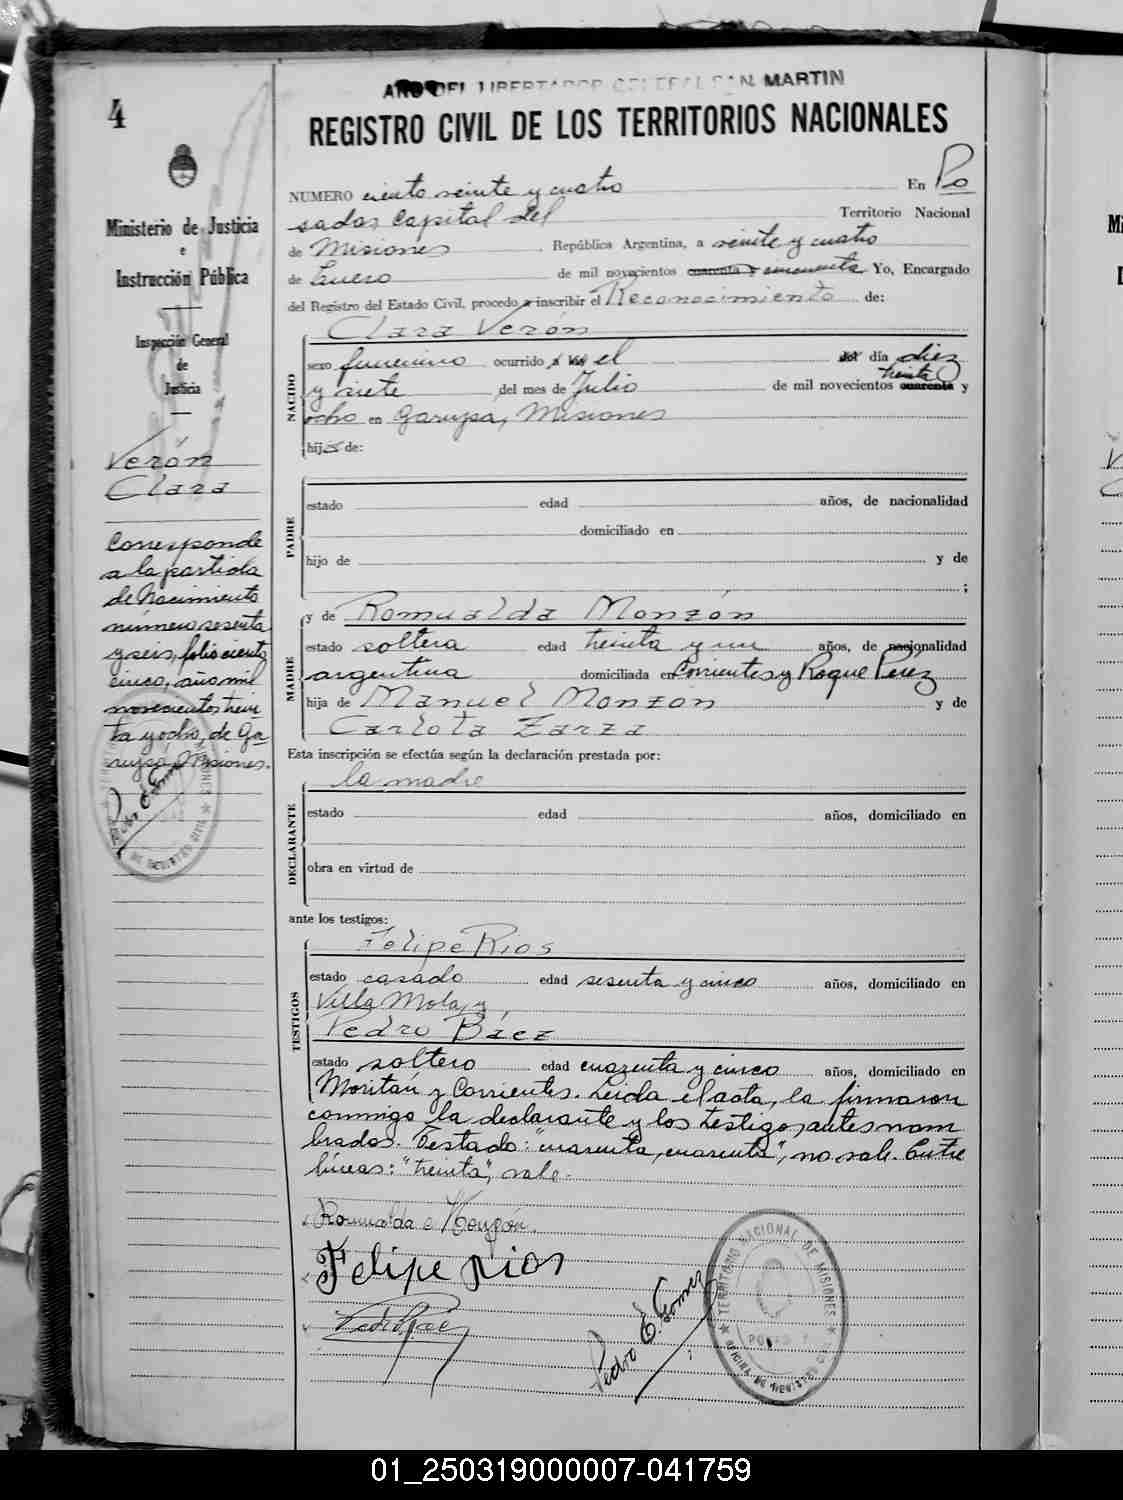 AÑO DEL LIBERTADOR GENERAL SAN MARTIN
4
REGISTRO CIVIL DE LOS TERRITORIOS NACIONALES
Ministerio de Justicia
e
Instrucción Pública
Inspección General
de
Justicia
Verón
Clara
Corresponde
a la partida
de Nacimiento
número sesenta
y seis, folio ciento
cinco, año mil
novecientos trein
ta y ocho, de Ga
rupá, Misiones.
Pedro E. Gomez
NUMERO ciento veinte y cuatro En Po
sadas Capital del Territorio Nacional
de Misiones República Argentina, a veinte y cuatro
de Enero de mil novecientos cuarenta y cincuenta Yo, Encargado
del Registro del Estado Civil, procedo a inscribir el Reconocimiento de:
Clara Verón
NACIDO
sexo femenino ocurrido a las el del día diez
treinta
y siete del mes de Julio de mil novecientos cuarenta y
ocho en Garupá, Misiones
hija de:
PADRE
estado edad años, de nacionalidad
domiciliado en
hijo de y de
;
y de Romualda Monzón
MADRE
estado soltera edad treinta y un años, de nacionalidad
argentina domiciliada en Corrientes y Roque Pérez
hija de Manuel Monzón y de
Carlota Zarza
Esta inscripción se efectúa según la declaración prestada por:
la madre
DECLARANTE
estado edad años, domiciliado en
obra en virtud de
ante los testigos:
Felipe Rios
TESTIGOS
estado casado edad sesenta y cinco años, domiciliado en
Villa Mola, y
Pedro Báez
estado soltero edad cuarenta y cinco años, domiciliado en
Moritán y Corrientes. Leida el acta, la firmaron
conmigo la declarante y los testigos antes nom
brados. Testado: "cuarenta, cuarenta", no vale. Entre
líneas: "treinta", vale.
Romualda Monzón
Felipe Rios
Pedro E. Gomez
TERRITORIO NACIONAL DE MISIONES
01_250319000007-041759